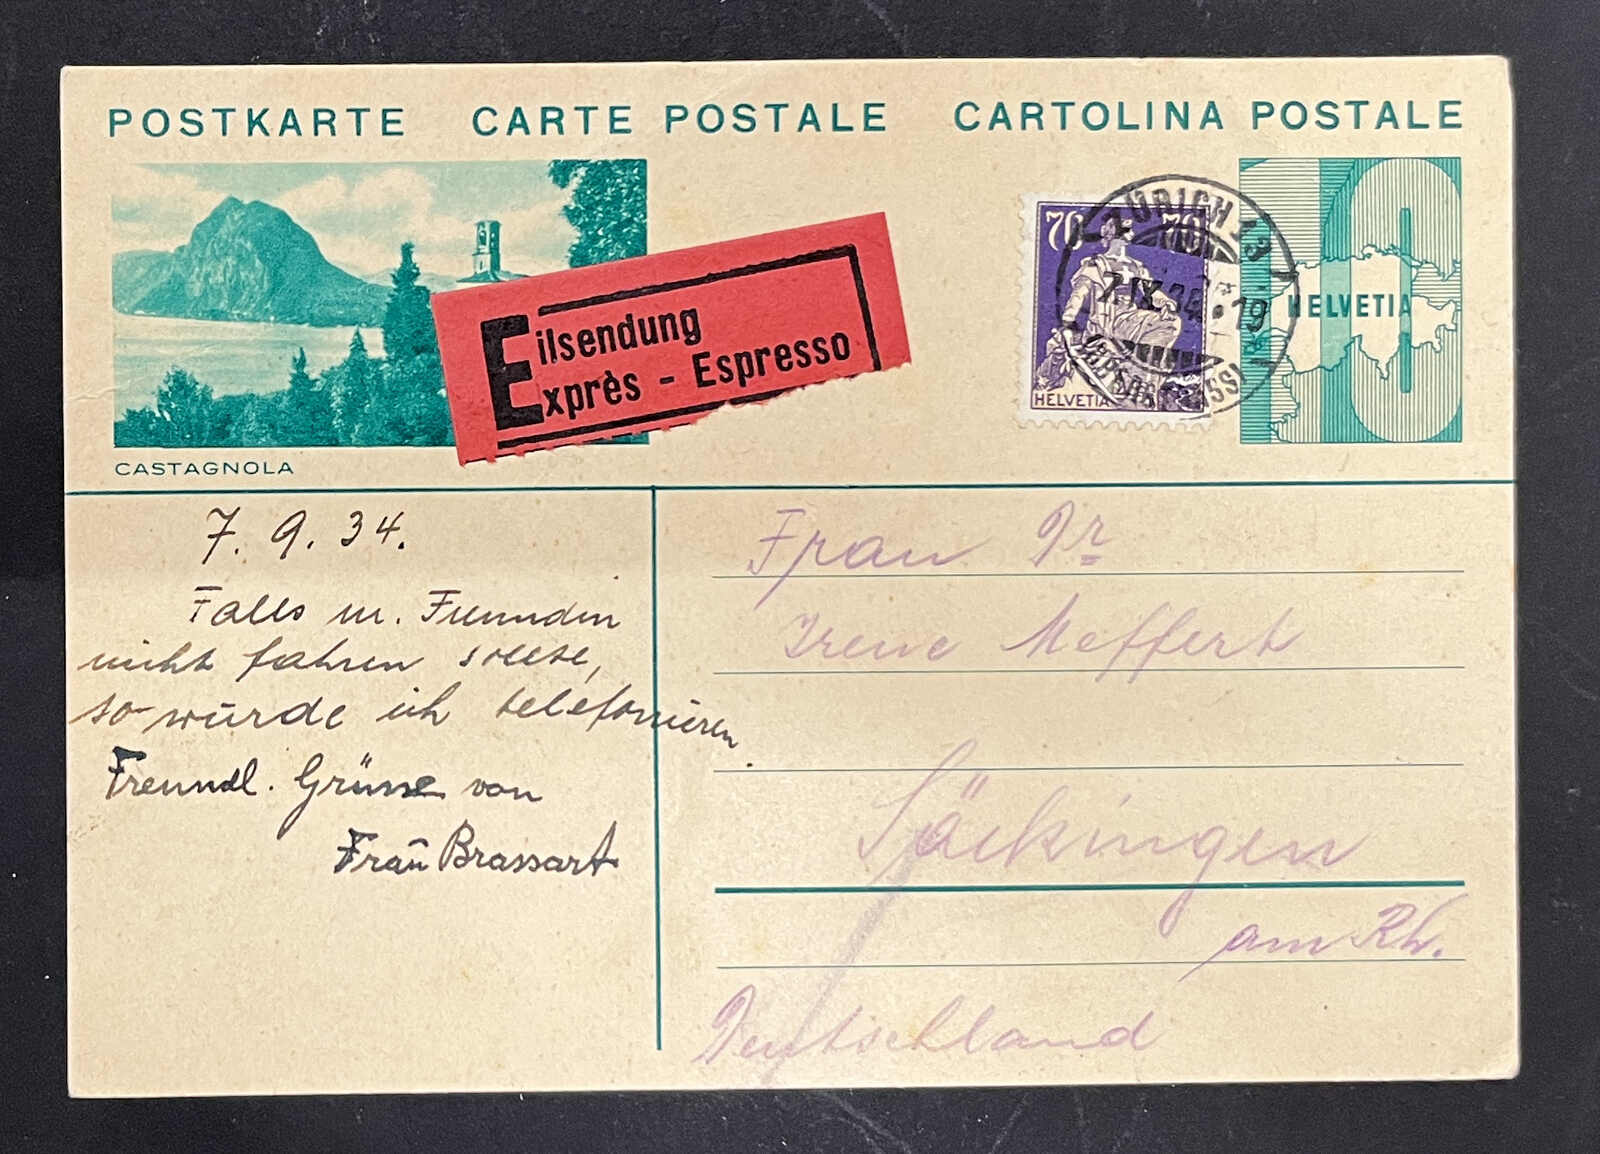 POSTKARTE CARTE POSTALE CARTOLINA POSTALE
CASTAGNOLA
Eilsendung
Exprès - Espresso
70 70
HELVETIA
ZÜRICH 13
7.IX.34.19
10
HELVETIA
7. 9. 34.
Falls m. Freundin
nicht fahren sollte,
so würde ich telefonieren
Freundl. Grüsse von
Frau Brassart
Frau Dr
Irene Meffert
Säckingen
am Rh.
Deutschland